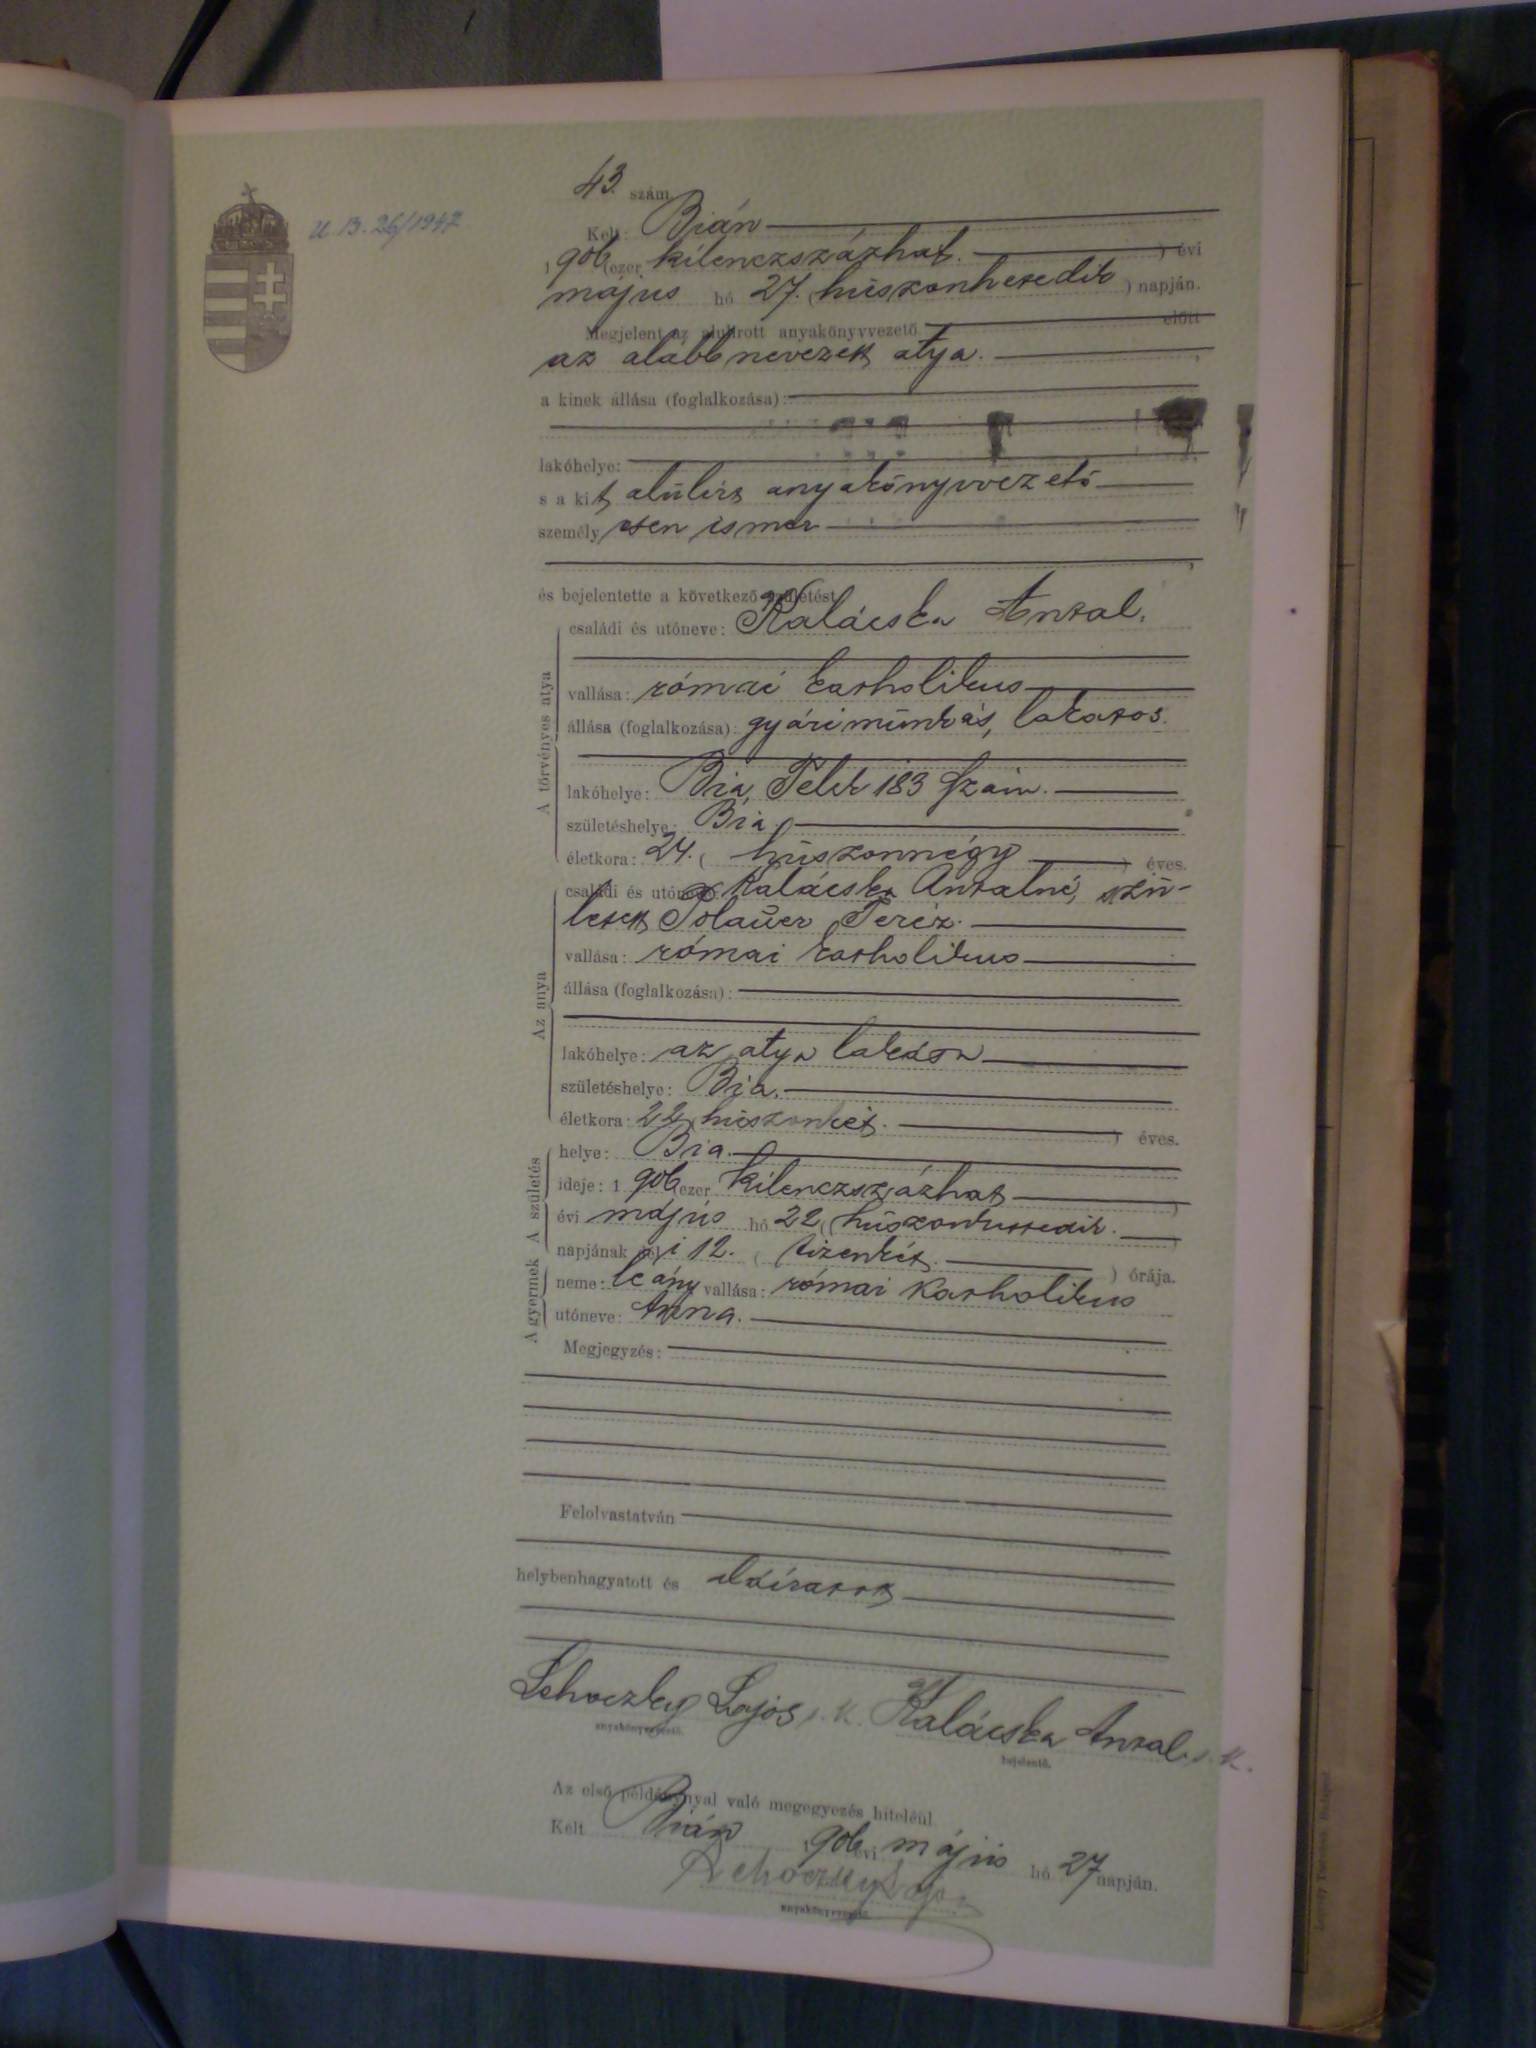 43. szám
U. B. 26/1947
Kelt: Bián
1906 (ezer kilenczszázhat. ) évi
május hó 27. (húszonhetedik ) napján.
Megjelent az alulírott anyakönyvvezető előtt
az alább nevezett atya.
a kinek állása (foglalkozása):
lakóhelye:
s a kit alúlírt anyakönyvvezető
személyesen ismer
és bejelentette a következő születést:
A törvényes atya
családi és utóneve: Kalácska Antal.
vallása: római katholikus
állása (foglalkozása): gyári múnkás, lakatos.
lakóhelye: Bia, Telek 183 szám.
születéshelye: Bia
életkora: 24. ( húszonnégy ) éves.
Az anya
családi és utóneve: Kalácska Antalné, szü-
letett Polaüer Teréz.
vallása: római katholikus
állása (foglalkozása):
lakóhelye: az atya lakása
születéshelye: Bia.
életkora: 22 (húszonkét. ) éves.
A születés
helye: Bia.
ideje: 1906 (ezer kilenczszázhat )
évi május hó 22 (húszonkettedik. )
napjának déli 12. ( tizenkét. ) órája.
A gyermek
neme: leány vallása: római katholikus
utóneve: Anna.
Megjegyzés:
Felolvastatván
helybenhagyatott és aláíratott
Lehoczky Lajos s. k. Kalácska Antal s. k.
anyakönyvvezető. bejelentő.
Az első példánynyal való megegyezés hiteléül
Kelt Bián 1906 évi május hó 27 napján.
Lehoczky Lajos
anyakönyvvezető.